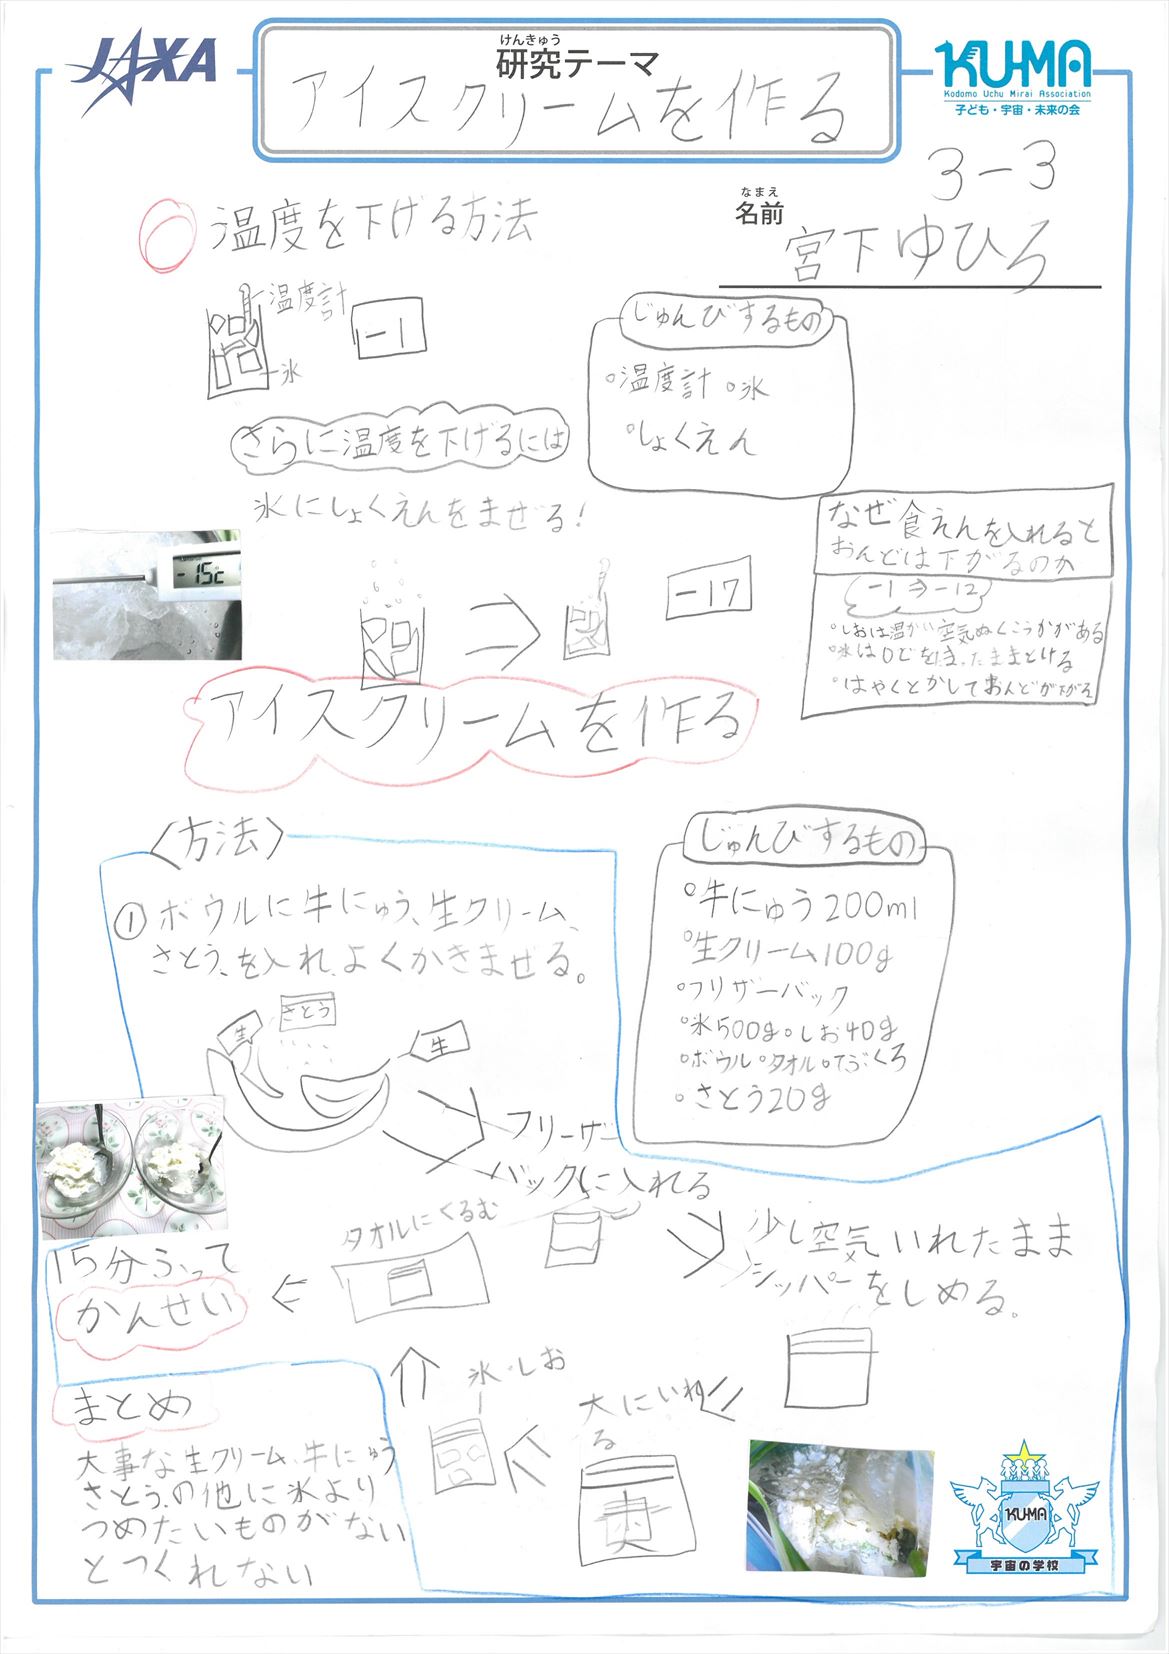 JAXA
けんきゅう
研究テーマ
アイスクリームを作る
KU-MA
Kodomo Uchu Mirai Association
子ども・宇宙・未来の会
3-3
なまえ
名前
宮下ゆひろ
温度を下げる方法
温度計
-1
氷
じゅんびするもの
・温度計 ・氷
・しょくえん
さらに温度を下げるには
氷にしょくえんをまぜる!
-15c
-17
なぜ食えんを入れると
おんどは下がるのか
-1⇒-12
・しおは温かい空気ぬくこうかがある
・氷は0どをたもったままとける
・はやくとかしておんどが下がる
アイスクリームを作る
<方法>
①ボウルに牛にゅう、生クリーム、
さとう、を入れ、よくかきまぜる。
生
さとう
牛
じゅんびするもの
・牛にゅう200ml
・生クリーム100g
・フリザーバック
・氷500g・しお40g
・ボウル・タオル・てぶくろ
・さとう20g
フリーザー
バックに入れる
少し空気いれたまま
ジッパーをしめる。
大にいれ
る
氷・しお
タオルにくるむ
15分ふって
かんせい
まとめ
大事な生クリーム、牛にゅう
さとう、の他に氷より
つめたいものがない
とつくれない
KU-MA
宇宙の学校